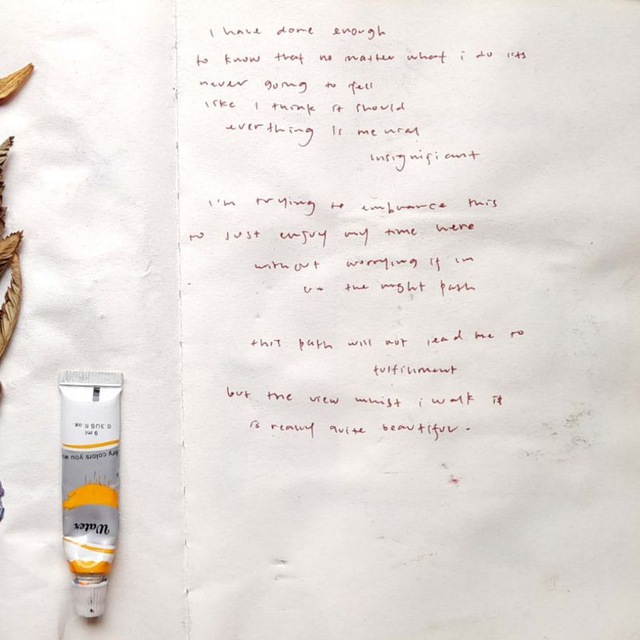 i have done enough
to know that no matter what i do its
never going to feel
like I think it should
everything is menial
insignificant
i'm trying to embrance this
to just enjoy my time here
without worrying if im
on the right path
this path will not lead me to
fulfillment
but the view whilst i walk it
is really quite beautiful.
9 ml
0.3US fl oz
colors you
Water